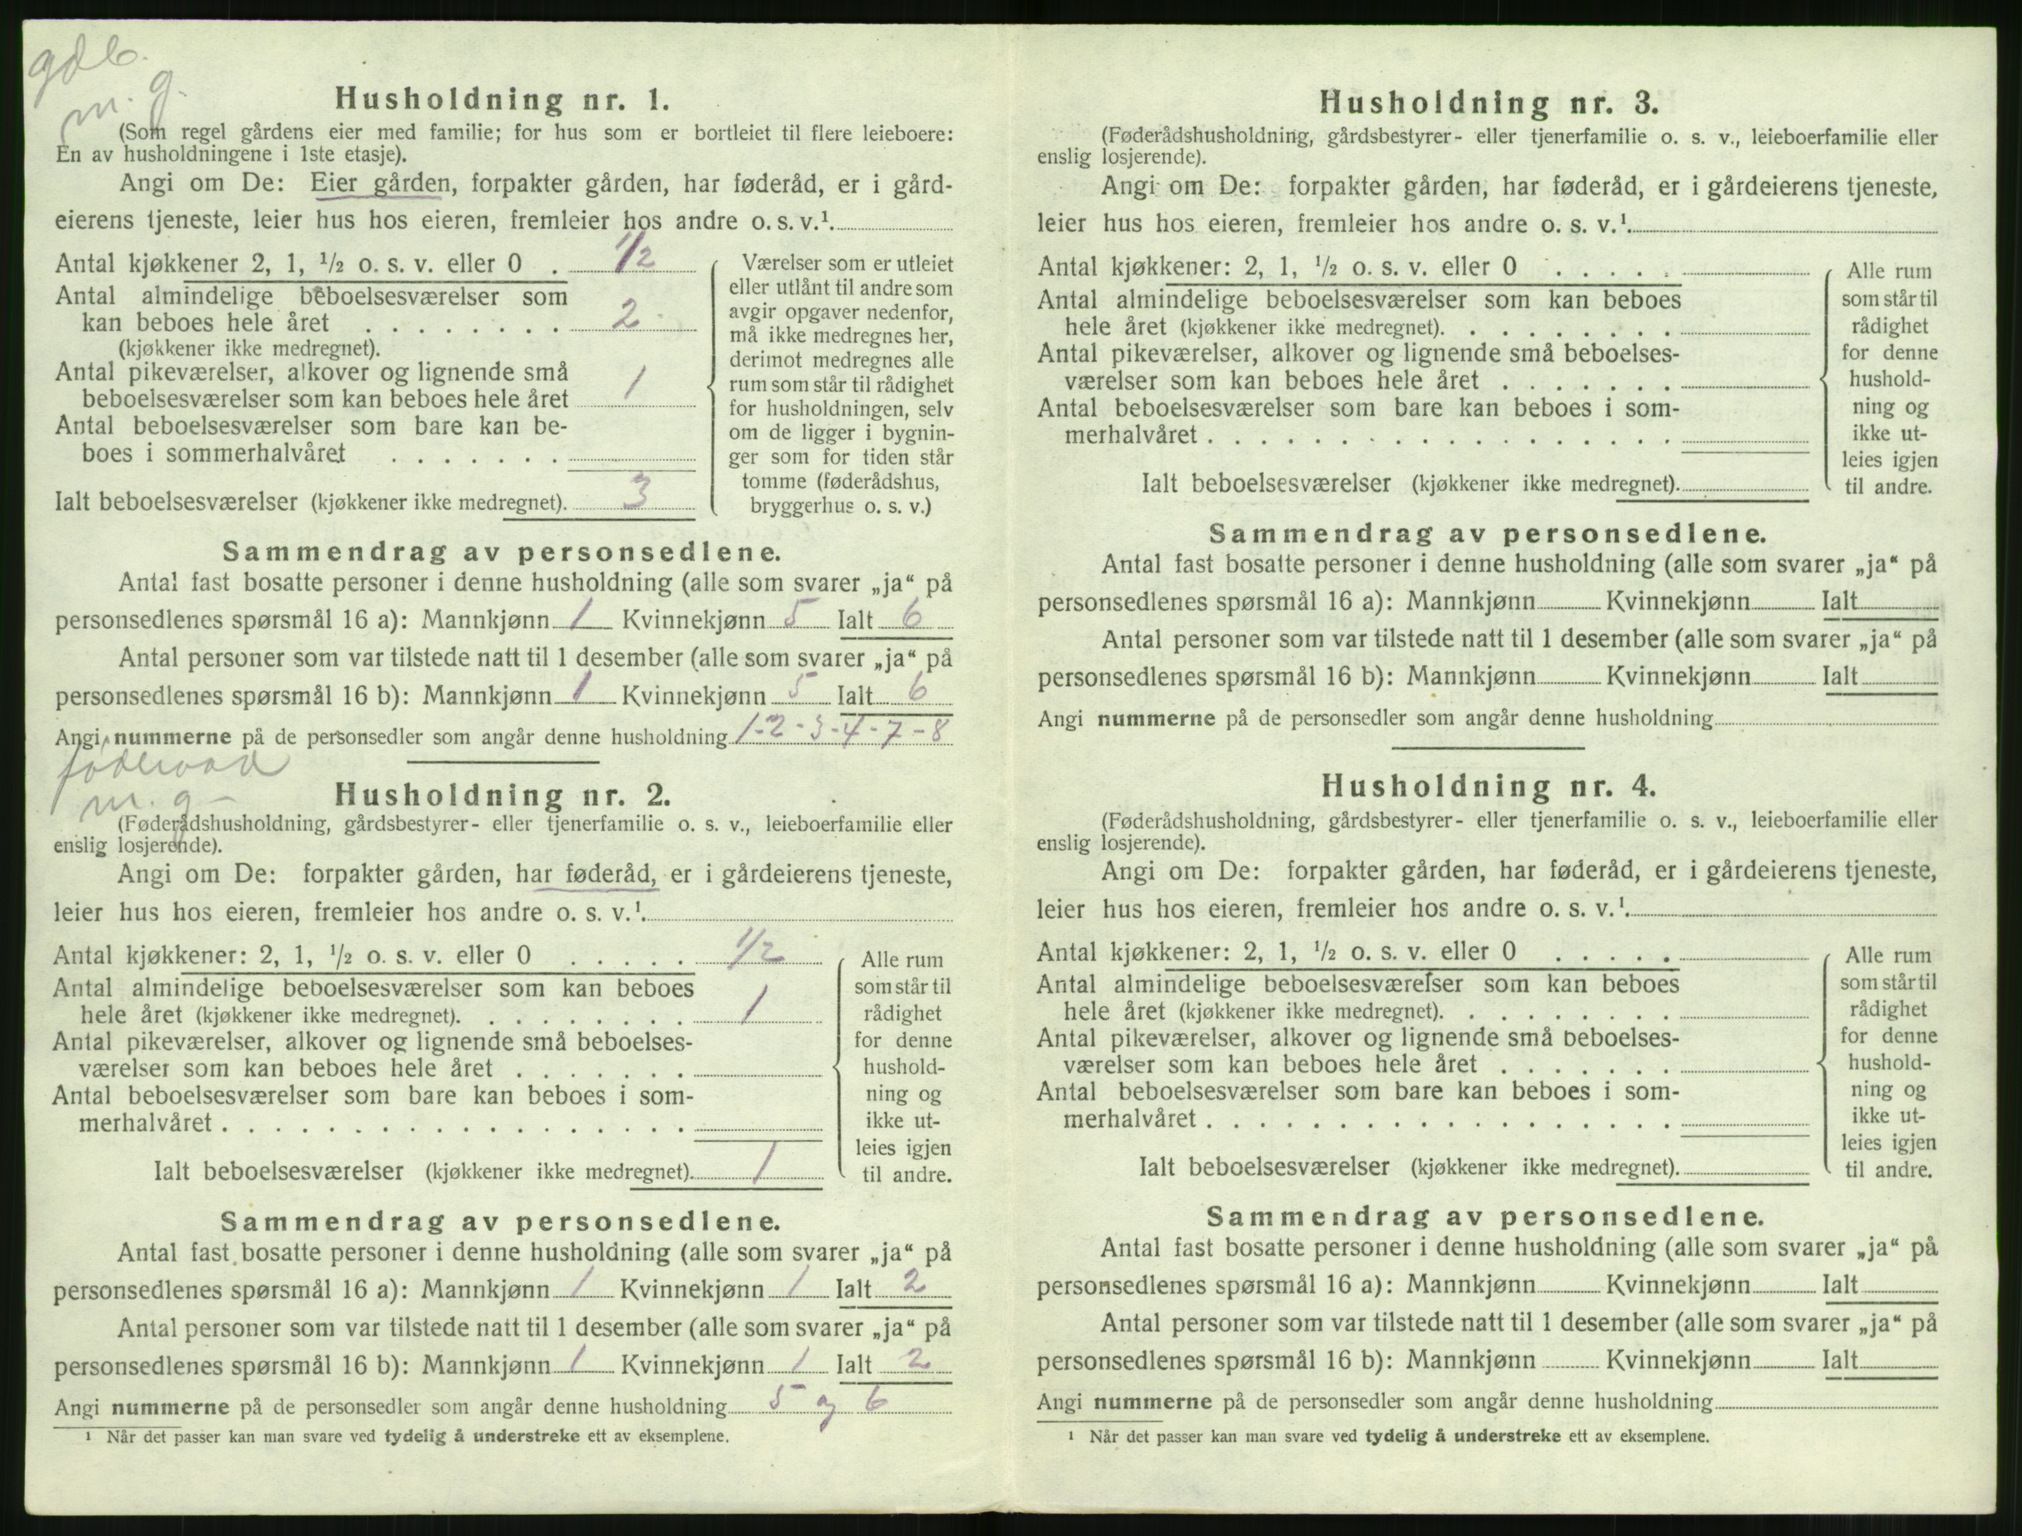 gdb.
m. g.
Husholdning nr. 1.
(Som regel gårdens eier med familie; for hus som er bortleiet til flere leieboere:
En av husholdningene i 1ste etasje).
Angi om De: Eier gården, forpakter gården, har føderåd, er i gård-
eierens tjeneste, leier hus hos eieren, fremleier hos andre o. s. v.¹
Antal kjøkkener 2, 1, ½ o. s. v. eller 0 . 1/2
Antal almindelige beboelsesværelser som
kan beboes hele året . . . . . . . . 2
(kjøkkener ikke medregnet).
Antal pikeværelser, alkover og lignende små
beboelsesværelser som kan beboes hele året 1
Antal beboelsesværelser som bare kan be-
boes i sommerhalvåret . . . . . . .
Ialt beboelsesværelser (kjøkkener ikke medregnet). 3
Værelser som er utleiet
eller utlånt til andre som
avgir opgaver nedenfor,
må ikke medregnes her,
derimot medregnes alle
rum som står til rådighet
for husholdningen, selv
om de ligger i bygnin-
ger som for tiden står
tomme (føderådshus,
bryggerhus o. s. v.)
Sammendrag av personsedlene.
Antal fast bosatte personer i denne husholdning (alle som svarer „ja“ på
personsedlenes spørsmål 16 a): Mannkjønn 1 Kvinnekjønn 5 Ialt 6
Antal personer som var tilstede natt til 1 desember (alle som svarer „ja“ på
personsedlenes spørsmål 16 b): Mannkjønn 1 Kvinnekjønn 5 Ialt 6
Angi nummerne på de personsedler som angår denne husholdning 1-2-3-4-7-8
føderaad
m. g-
Husholdning nr. 2.
(Føderådshusholdning, gårdsbestyrer- eller tjenerfamilie o. s. v., leieboerfamilie eller
enslig losjerende).
Angi om De: forpakter gården, har føderåd, er i gårdeierens tjeneste,
leier hus hos eieren, fremleier hos andre o. s. v.¹
Antal kjøkkener: 2, 1, ½ o. s. v. eller 0 . . . . . 1/2
Antal almindelige beboelsesværelser som kan beboes
hele året (kjøkkener ikke medregnet). . . . . . . . . 1
Antal pikeværelser, alkover og lignende små beboelses-
værelser som kan beboes hele året . . . . . . .
Antal beboelsesværelser som bare kan beboes i som-
merhalvåret . . . . . . . . . . . . . . . . . .
Ialt beboelsesværelser (kjøkkener ikke medregnet). 1
Alle rum
som står til
rådighet
for denne
hushold-
ning og
ikke ut-
leies igjen
til andre.
Sammendrag av personsedlene.
Antal fast bosatte personer i denne husholdning (alle som svarer „ja“ på
personsedlenes spørsmål 16 a): Mannkjønn 1 Kvinnekjønn 1 Ialt 2
Antal personer som var tilstede natt til 1 desember (alle som svarer „ja“ på
personsedlenes spørsmål 16 b): Mannkjønn 1 Kvinnekjønn 1 Ialt 2
Angi nummerne på de personsedler som angår denne husholdning 5 og 6
¹ Når det passer kan man svare ved tydelig å understreke ett av eksemplene.
Husholdning nr. 3.
(Føderådshusholdning, gårdsbestyrer- eller tjenerfamilie o. s. v., leieboerfamilie eller
enslig losjerende).
Angi om De: forpakter gården, har føderåd, er i gårdeierens tjeneste,
leier hus hos eieren, fremleier hos andre o. s. v.¹
Antal kjøkkener: 2, 1, ½ o. s. v. eller 0 . . . . .
Antal almindelige beboelsesværelser som kan beboes
hele året (kjøkkener ikke medregnet). . . . . . . . .
Antal pikeværelser, alkover og lignende små beboelses-
værelser som kan beboes hele året . . . . . . .
Antal beboelsesværelser som bare kan beboes i som-
merhalvåret . . . . . . . . . . . . . . . . . .
Ialt beboelsesværelser (kjøkkener ikke medregnet).
Alle rum
som står til
rådighet
for denne
hushold-
ning og
ikke ut-
leies igjen
til andre.
Sammendrag av personsedlene.
Antal fast bosatte personer i denne husholdning (alle som svarer „ja“ på
personsedlenes spørsmål 16 a): Mannkjønn Kvinnekjønn Ialt
Antal personer som var tilstede natt til 1 desember (alle som svarer „ja“ på
personsedlenes spørsmål 16 b): Mannkjønn Kvinnekjønn Ialt
Angi nummerne på de personsedler som angår denne husholdning
Husholdning nr. 4.
(Føderådshusholdning, gårdsbestyrer- eller tjenerfamilie o. s. v., leieboerfamilie eller
enslig losjerende).
Angi om De: forpakter gården, har føderåd, er i gårdeierens tjeneste,
leier hus hos eieren, fremleier hos andre o. s. v.¹
Antal kjøkkener: 2, 1, ½ o. s. v. eller 0 . . . . .
Antal almindelige beboelsesværelser som kan beboes
hele året (kjøkkener ikke medregnet). . . . . . . . .
Antal pikeværelser, alkover og lignende små beboelses-
værelser som kan beboes hele året . . . . . . .
Antal beboelsesværelser som bare kan beboes i som-
merhalvåret . . . . . . . . . . . . . . . . . .
Ialt beboelsesværelser (kjøkkener ikke medregnet).
Alle rum
som står til
rådighet
for denne
hushold-
ning og
ikke ut-
leies igjen
til andre.
Sammendrag av personsedlene.
Antal fast bosatte personer i denne husholdning (alle som svarer „ja“ på
personsedlenes spørsmål 16 a): Mannkjønn Kvinnekjønn Ialt
Antal personer som var tilstede natt til 1 desember (alle som svarer „ja“ på
personsedlenes spørsmål 16 b): Mannkjønn Kvinnekjønn Ialt
Angi nummerne på de personsedler som angår denne husholdning
¹ Når det passer kan man svare ved tydelig å understreke ett av eksemplene.